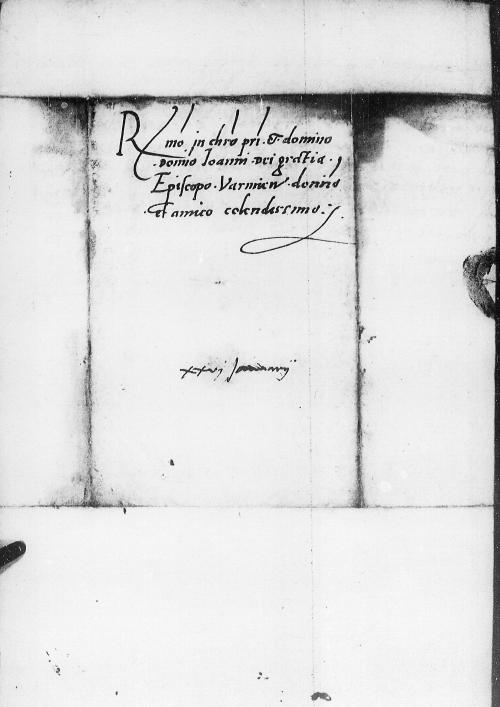 Rmo in chro pri et domino
domino Ioanni Dei gratia
Episcopo Varmien domino
et amico colendissimo
xxvj Januarij